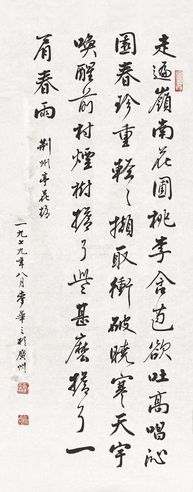 走遍嶺南花圃桃李含苞欲吐高唱沁
園春珍重輕々擷取衝破曉寒天宇
喚醒前村煙樹掮了些甚麼掮了一
肩春雨
荊州亭花
一九七九年八月麥華三於廣州